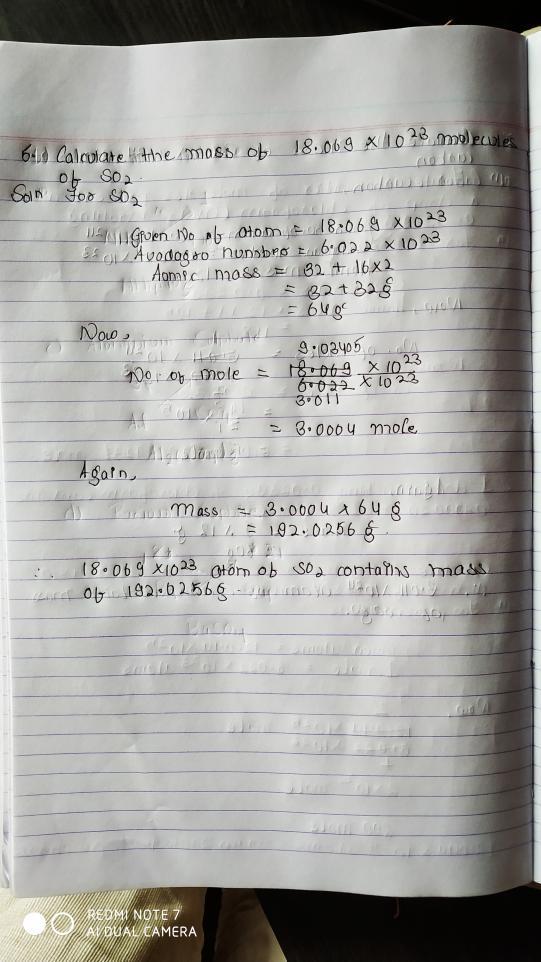 6.) Calculate the mass of 18.069 × 10²³ molecules
of SO₂.
Soln For SO₂
Given No of atom = 18.069 × 10²³
Avodagro number = 6.022 × 10²³
Aomic mass = 32 + 16×2
= 32 + 32g
= 64g
Now,
9.03405
No of mole = 18.069 × 10²³
6.022 × 10²³
3.011
= 3.0004 mole
Again,
Mass = 3.0004 × 64 g
= 192.0256 g.
∴ 18.069 × 10²³ atom of SO₂ contains mass
of 192.0256g.
REDMI NOTE 7
AI DUAL CAMERA